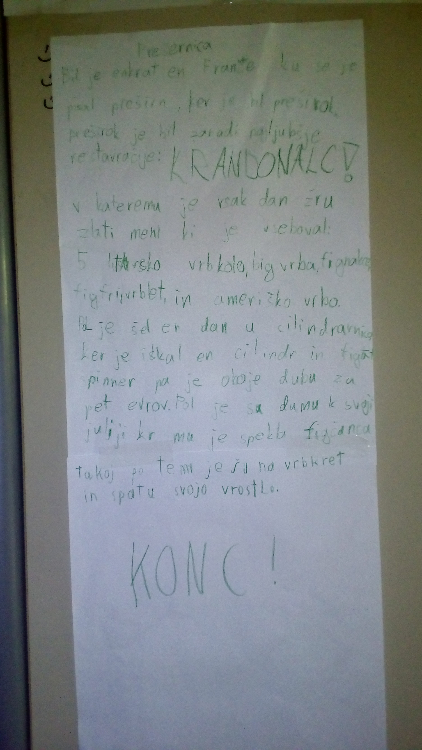 Prešernca
Bil je enkrat en France ku se je
pisal preširn, ker je bil preširok,
preširok je bil zaradi najljubše
restavracije: KRANDONALC!
v kateremu je vsak dan žru
zlati meni ki je vseboval:
5 vrbkolo, big vrba,
in ameriško vrbo.
Pol je šel en dan u cilindrarnico
ker je iskal en cilindr in
pa je oboje dubu za
pet evrov. Pol je šu damu k svoji
juliji kr mu je spekla figjanca
takoj po temu je šu na vrbkret
in spat u svojo vrostlo.
KONC!